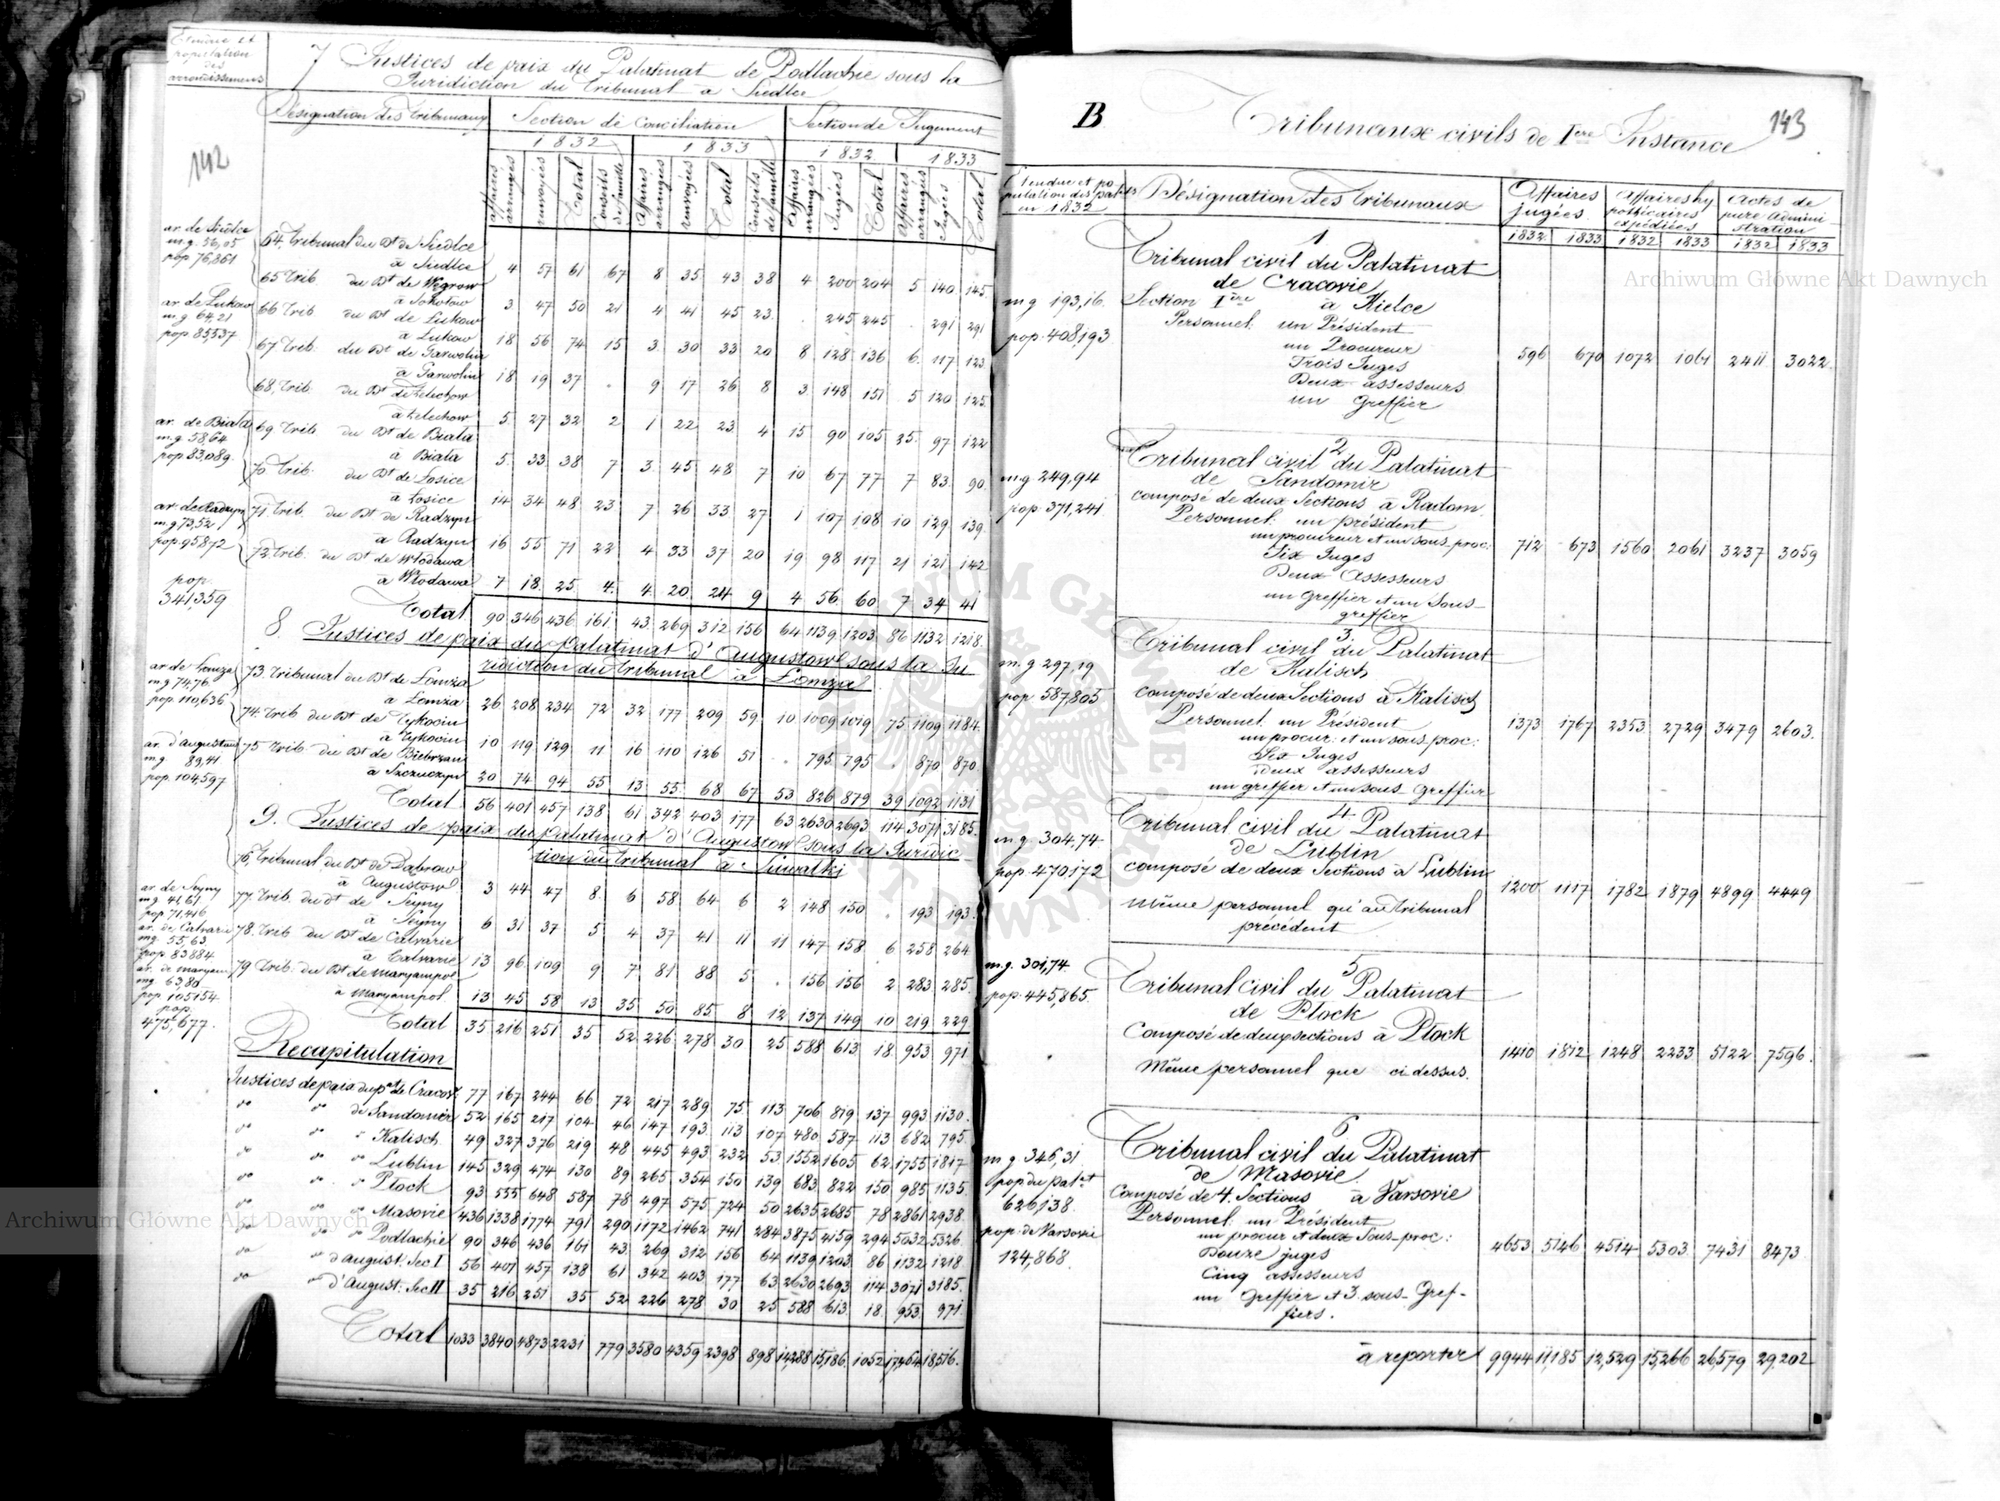 Etendue et
population
des
arrondissements
7 Justices de paix du Palatinat de Podlachie sous la
Juridiction du tribunal à Siedlce
142
Désignation des tribunaux Section de Conciliation Section de Jugement
1832 1833 1832 1833
affaires arrangés renvoyées Total Conseils de famille Affaires arrangées renvoyées Total Conseils de famille Affaires arrangées Jugées Total Affaires arrangées Jugées Total
ar. de Siedlce
m.g. 56,05
pop 76,861
64. Tribunal du Dt de Siedlce
à Siedlce 4 57 61 67 8 35 43 38 4 200 204 5 140 145
65 Trib. du Dt de Wegrow
à Sokolow 3 47 50 21 4 41 45 23 . 245 245 . 291 291
ar de Lukow
m.g 64,21
pop 85537
66 Trib. du Dt de Lukow
à Lukow 18 56 74 15 3 30 33 20 8 128 136 6 117 123
67 Trib. du Dt de Garwolin
à Garwolin 18 19 37 . 9 17 26 8 3 148 151 5 120 125
68. Trib. du Dt de Zelechow
à Zelechow 5 27 32 2 1 22 23 4 15 90 105 25 97 122
ar. de Biala
m.g. 58,64
pop 83,089.
69 Trib. du Dt de Biala
à Biala 5 33 38 7 3 45 48 7 10 67 77 7 83 90
70 Trib. du Dt de Losice
à Losice 14 34 48 23 7 26 33 27 1 107 108 10 129 139
ar. de Radzyn
m.g 73,52
pop.95872
71 Trib. du Dt de Radzyn
à Radzyn 16 55 71 22 4 33 37 20 19 98 117 21 121 142
72 Trib. du Dt de Wlodawa
à Wlodawa 7 18 25 4. 4 20 24 9 4 56 60 7 34 41
pop.
341,359
Total 90 346 436 161 43 269 312 156 64 1139 1203 86 1132 1218
8. Justices de paix du palatinat d'Augustow sous la Ju
ridiction du tribunal à Lomza
ar de Lomza
m.g 74,76
pop 110,636
73. Tribunal du Dt de Lomza
à Lomza 26 208 234 72 32 177 209 59 10 1009 1019 75 1109 1184
74. Trib du Dt de Tykocin
à Tykocin 10 119 129 11 16 110 126 51 . 795 795 . 870 870
ar. d'Augustow
m.g. 89,41
pop. 104,597
75 Trib. du Dt de Biebrzan
à Szczuczyn 20 74 94 55 13 55 68 67 53 826 879 39 1092 1131
Total 56 401 457 138 61 342 403 177 63 2630 2693 114 3071 3185
9. Justices de paix du palatinat d'Augustow sous la Juridic
tion du tribunal à Suwalki
76, Tribunal du Dt de Dabrow
à Augustow 3 44 47 8 6 58 64 6 2 148 150 . 193 193
ar. de Seyny
m.g 41,61
pop 71,416
77. Trib du dt de Seyny
à Seyny 6 31 37 5 4 37 41 11 11 147 158 6 258 264
ar. de Calvarie
m.g. 55,63
pop 83884
78. Trib du Dt de Calvarie
à Calvarie 13 96 109 9 7 81 88 5 . 156 156 2 283 285
ar. de maryam
mg 63,80
pop 105154
79 Trib. du Dt de maryampol
à Maryampol 13 45 58 13 35 50 85 8 12 137 149 10 219 229
pop.
475,677.
Total 35 216 251 35 52 226 278 30 25 588 613 18 953 971
Recapitulation
Justices de paix du pal de Cracov 77 167 244 66 72 217 289 75 113 706 819 137 993 1130
de Sandomir 52 165 217 104 46 147 193 113 107 480 587 113 682 795
Kalisch 49 327 376 219 48 445 493 232 53 1552 1605 62 1755 1817
Lublin 145 329 474 130 89 265 354 150 139 683 822 150 985 1135
Plock 93 555 648 587 78 497 575 724 50 2635 2685 78 2861 2938
Masovie 436 1338 1774 791 290 1172 1462 741 284 3875 4159 294 5032 5326
Podlachie 90 346 436 161 43 269 312 156 64 1139 1203 86 1132 1218
d'august. Sec I 56 401 457 138 61 342 403 177 63 2630 2693 114 3071 3185
d'August. Sec II 35 216 251 35 52 226 278 30 25 588 613 18 953 971
Total 1033 3840 4873 2231 779 3580 4359 2398 898 14,288 15,186 1052 17,464 18,516.
B Tribunaux civils de Iere Instance 143
Etendue et po
pulation des palats
en 1832
Désignation des tribunaux Affaires jugées Affaires hypothécaires expédiées Actes de pure Administration
1832 1833 1832 1833 1832 1833
1
Tribunal civil du Palatinat
de Cracovie
m.g 193,16. Section Ière à Kielce
Personnel un Président
pop. 408,193 un Procureur
Trois Juges 596 670 1072 1061 2411 3022.
Deux assesseurs
un Greffier
2
Tribunal civil du Palatinat
m.g 249,94 de Sandomir
composé de deux Sections à Radom.
pop 371,241. Personnel: un président
un procureur et un sous-proc:
Six Juges 712 673 1560 2061 3237 3059
Deux Assesseurs
un Greffier et un Sous-
greffier
3.
Tribunal civil du Palatinat
m.g 297,19 de Kalisch
pop 587,805 composé de deux Sections à Kalisch
Personnel un Président
un procur: et un sous-proc: 1373 1767 2353 2729 3479 2603.
Six Juges
Deux assesseurs
un greffier et un sous Greffier
4
Tribunal civil du Palatinat
m.g. 304,74 de Lublin
pop. 470172 composé de deux Sections à Lublin
1200 1117 1782 1879 4899 4449
Même personnel qu'au Tribunal
précédent
5
m.g. 301,74
Tribunal Civil du Palatinat
pop. 445,865. de Plock
Composé de deux sections à Plock
1410 1812 1248 2233 5122 7596.
Même personnel que ci dessus.
6
Tribunal civil du Palatinat
m.g 346,31 de Masovie
pop du palat Composé de 4. Sections à Varsovie
626,138. Personnel: un Président
pop. de Varsovie un procur et deux Sous-proc:
124,868. Douze juges 4653 5146 4514 5303 7431 8473
Cinq assesseurs
un Greffier et 3 sous-Gref-
fiers.
à reporter 9944 11,185 12,529 15,266 26,579 29,202
Archiwum Główne Akt Dawnych
Archiwum Główne Akt Dawnych